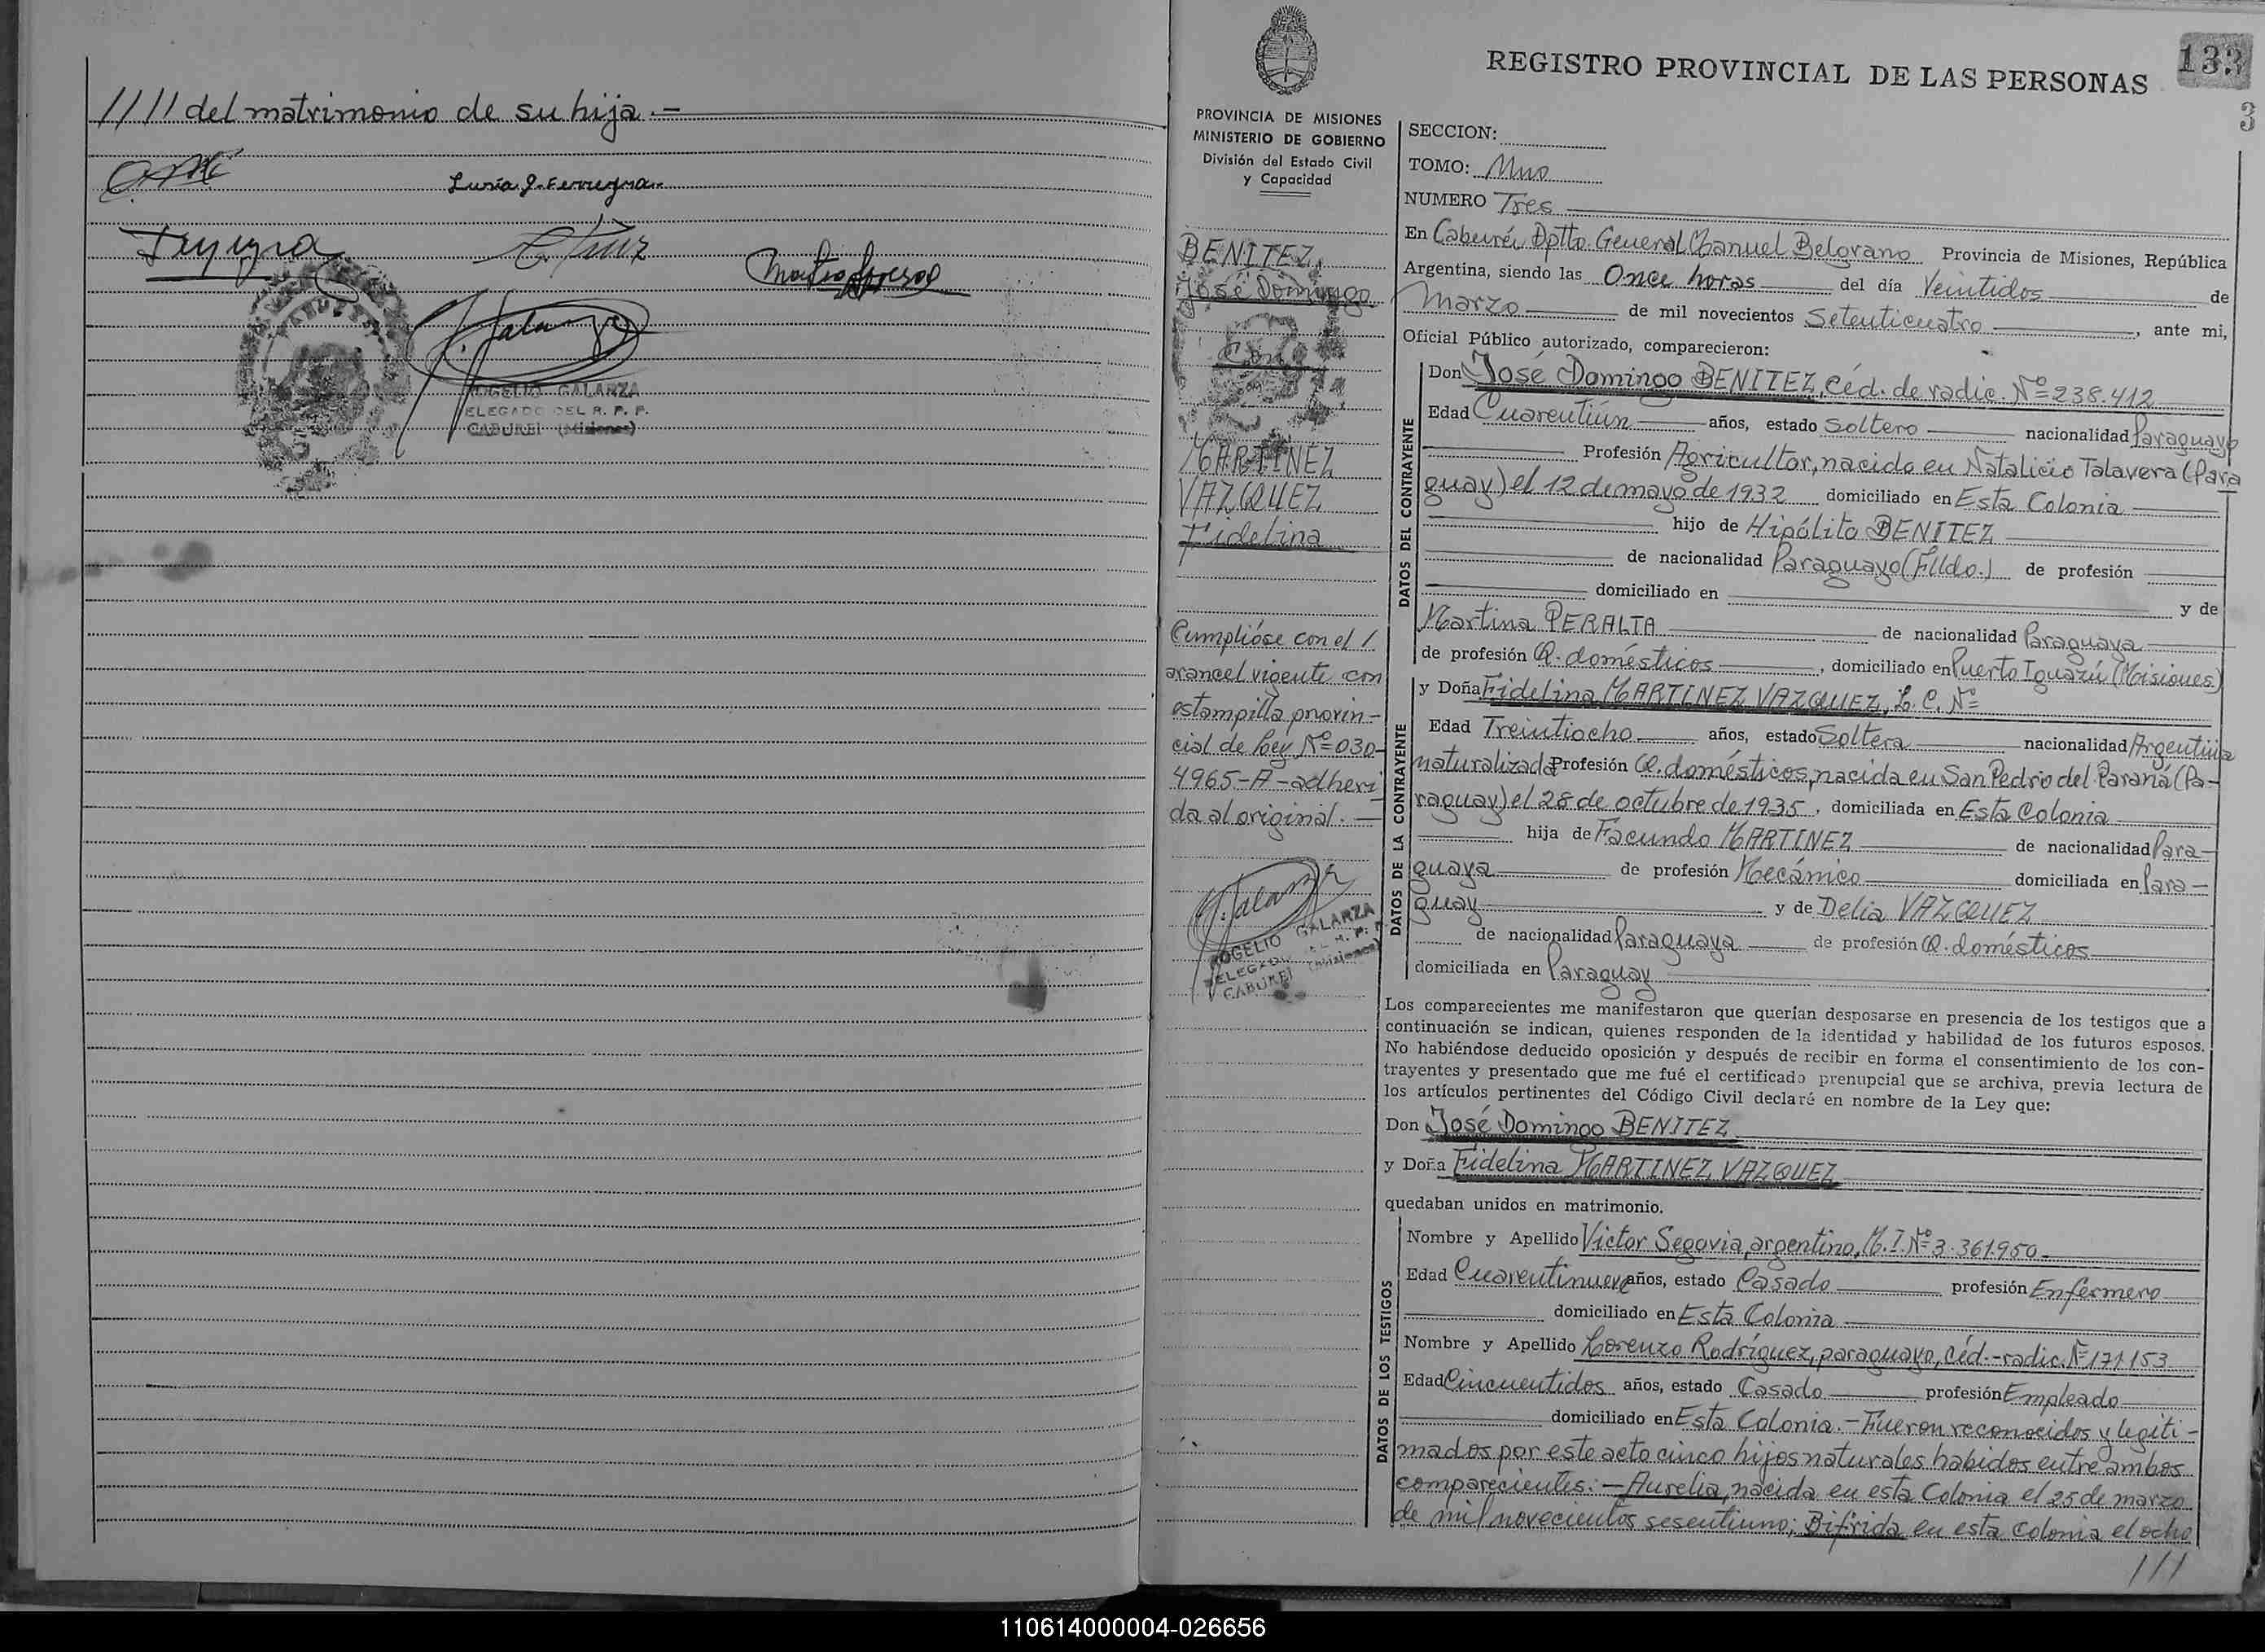 //// del matrimonio de su hija.-
ROGELIO GALARZA
DELEGADO DEL R. P. P.
CABUREI (Misiones)
133
3
REGISTRO PROVINCIAL DE LAS PERSONAS
PROVINCIA DE MISIONES
MINISTERIO DE GOBIERNO
División del Estado Civil
y Capacidad
BENITEZ,
José Domingo
Con
MARTINEZ
VAZQUEZ
Fidelina
Cumplióse con el /
arancel vigente con
estampilla provin-
cial de Ley Nº 030-
4965-A-adheri
da al original.-
ROGELIO GALARZA
CABUREI (Misiones)
SECCION:
TOMO: Uno
NUMERO Tres
En Caburéi Dptto. General Manuel Belgrano Provincia de Misiones, República
Argentina, siendo las Once horas del día Veintidos de
Marzo de mil novecientos Setenticuatro, ante mi,
Oficial Público autorizado, comparecieron:
DATOS DEL CONTRAYENTE
Don José Domingo BENITEZ, Céd. de radic. Nº 238.412
Edad Cuarentiún años, estado Soltero nacionalidad Paraguayo
Profesión Agricultor, nacido en Natalicio Talavera (Para
guay) el 12 de mayo de 1932 domiciliado en Esta Colonia
hijo de Hipólito BENITEZ
de nacionalidad Paraguayo (Flldo.) de profesión
domiciliado en y de
Martina PERALTA de nacionalidad Paraguaya
de profesión Q. domésticos, domiciliado en Puerto Iguazú (Misiones)
DATOS DE LA CONTRAYENTE
y Doña Fidelina MARTINEZ VAZQUEZ, L. C. Nº
Edad Treintiocho años, estado Soltera nacionalidad Argentina
naturalizada Profesión Q. domésticos, nacida en San Pedro del Paraná (Pa-
raguay) el 28 de octubre de 1935, domiciliada en Esta Colonia
hija de Facundo MARTINEZ de nacionalidad Para-
guaya de profesión Mecánico domiciliada en Para-
guay y de Delia VAZQUEZ
de nacionalidad Paraguaya de profesión Q. domésticos
domiciliada en Paraguay
Los comparecientes me manifestaron que querían desposarse en presencia de los testigos que a
continuación se indican, quienes responden de la identidad y habilidad de los futuros esposos.
No habiéndose deducido oposición y después de recibir en forma el consentimiento de los con-
trayentes y presentado que me fué el certificado prenupcial que se archiva, previa lectura de
los artículos pertinentes del Código Civil declaré en nombre de la Ley que:
Don José Domingo BENITEZ
y Doña Fidelina MARTINEZ VAZQUEZ
quedaban unidos en matrimonio.
DATOS DE LOS TESTIGOS
Nombre y Apellido Victor Segovia, argentino, M. I. Nº 3.361.950-
Edad Cuarentinueve años, estado Casado profesión Enfermero
domiciliado en Esta Colonia
Nombre y Apellido Lorenzo Rodríguez, paraguayo, céd.-radic. Nº 171153
Edad Cincuentidos años, estado Casado profesión Empleado
domiciliado en Esta Colonia.-Fueron reconocidos y legiti-
mados por este acto cinco hijos naturales habidos entre ambos
comparecientes:-Aurelia, nacida en esta Colonia el 25 de marzo
de mil novecientos sesentiuno; Bifrida en esta colonia el ocho
///
110614000004-026656